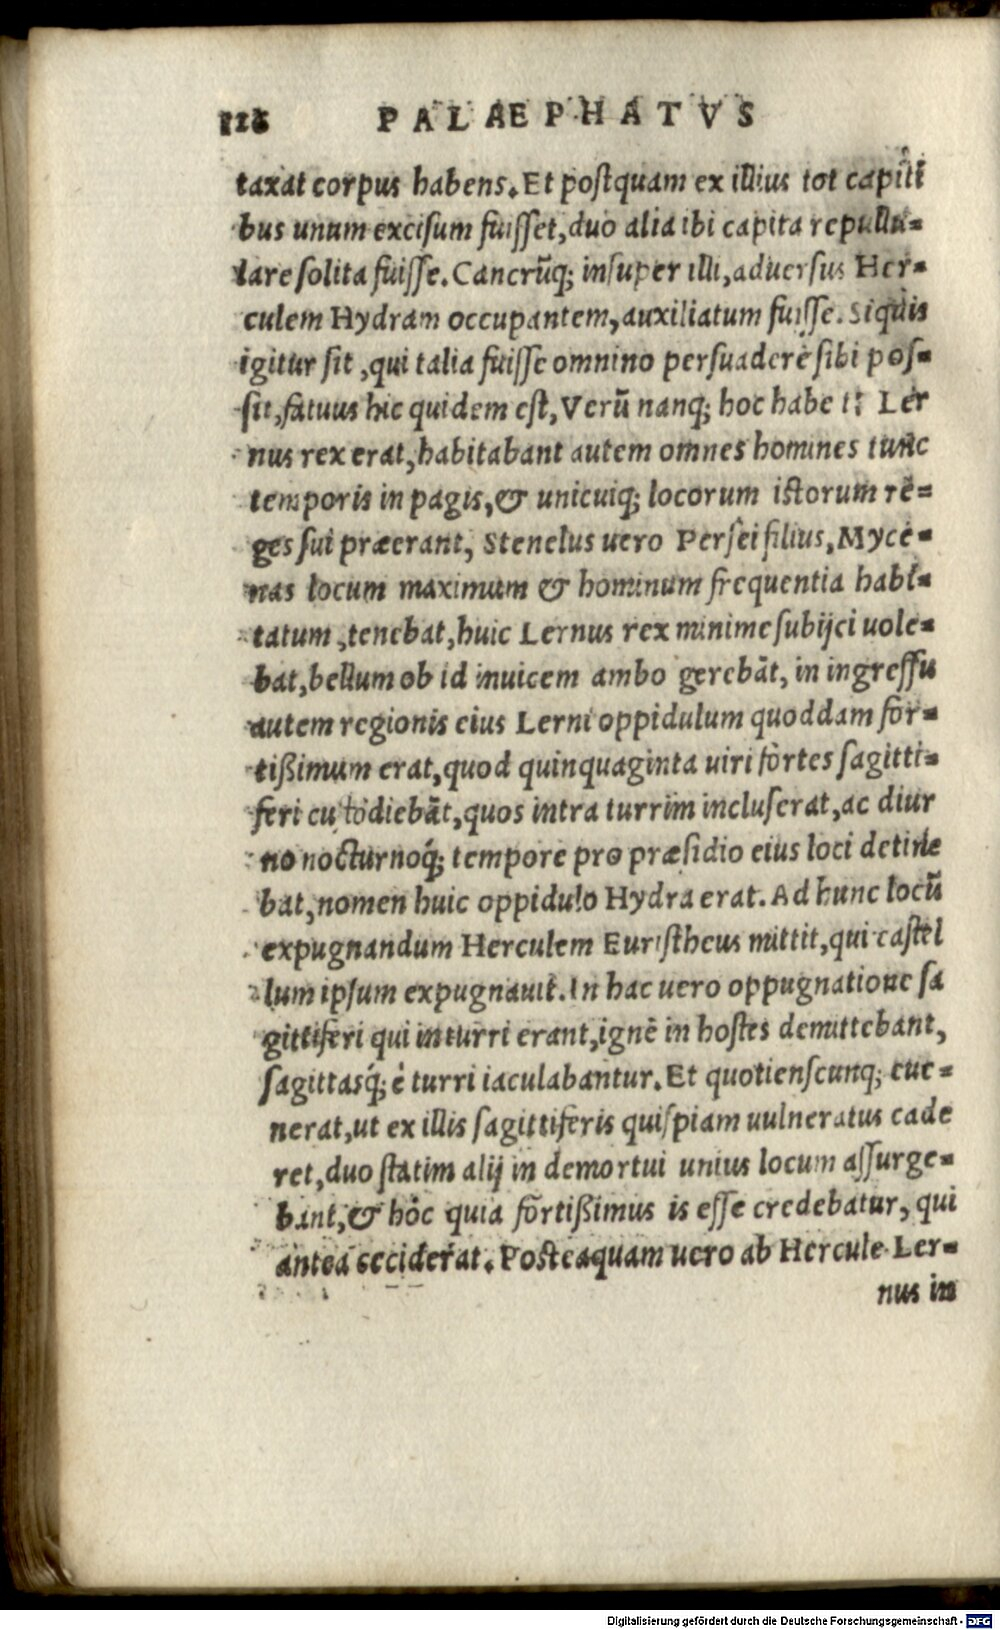 PALAEPHATVS
taxat corpus habens. Et postquam ex illius tot capiti
bus unum excisum fuisset, duo alia ibi capita repullu-
lare solita fuisse. Cancrũq; insuper illi, aduersus Her-
culem Hydram occupantem, auxiliatum fuisse. Siquis
igitur sit, qui talia fuisse omnino persuadere sibi pos-
sit, fatuus hic quidem est, Verũ nanq; hoc habet: Ler
nus rex erat, habitabant autem omnes homines tunc
temporis in pagis, & unicuiq; locorum istorum re-
ges sui præerant, Stenelus uero Persei filius, Myce-
nas locum maximum & hominum frequentia habi-
tatum, tenebat, huic Lernus rex minime subijci uole-
bat, bellum ob id inuicem ambo gerebãt, in ingressu
autem regionis eius Lerni oppidulum quoddam for-
tißimum erat, quod quinquaginta uiri fortes sagitti-
feri custodiebãt, quos intra turrim incluserat, ac diur
no nocturnoq́; tempore pro præsidio eius loci detine
bat, nomen huic oppidulo Hydra erat. Ad hunc locũ
expugnandum Herculem Euristheus mittit, qui castel
lum ipsum expugnauit. In hac uero oppugnatione sa
gittiferi qui in turri erant, ignẽ in hostes demittebant,
sagittasq́; è turri iaculabantur. Et quotienscunq; eue-
nerat, ut ex illis sagittiferis quispiam uulneratus cade
ret, duo statim alij in demortui unius locum assurge-
bant, & hoc quia fortißimus is esse credebatur, qui
antea ceciderat. Posteaquam uero ab Hercule Ler-
nus in
Digitalisierung gefördert durch die Deutsche Forschungsgemeinschaft - DFG